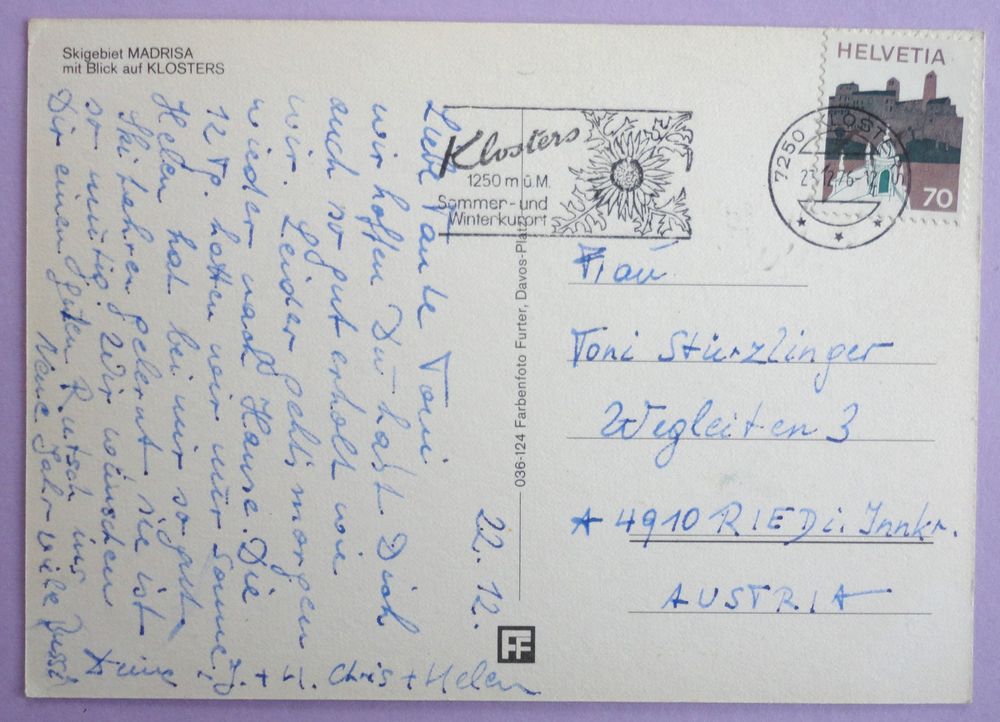 Skigebiet MADRISA
mit Blick auf KLOSTERS
HELVETIA
70
7250 KLOSTERS
23.12.76-12
Klosters
1250 m ü. M.
Sommer- und
Winterkurort
036-124 Farbenfoto Furter, Davos-Platz
22.12.
Liebe Tante Toni
wir hoffen Du hast Dich
auch so gut erholt wie
wir. Leider geht's morgen
wieder nach Hause. Die
12 Tg. hatten wir nur Sonne!
Helen hat bei mir so gut
Ski fahren gelernt sie ist
so mutig. Wir wünschen
Dir einen guten Rutsch ins
Neue Jahr viele Bussi
+ H. Chris + Helen
Frau
Toni Stürzlinger
Wegleiten 3
A 4910 RIED i. Innkr.
AUSTRIA
FF